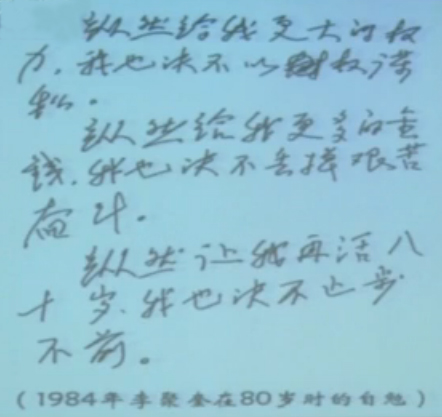 纵然给我更大的权
力，我也决不以权谋
私。
纵然给我更多的金
钱，我也决不丢掉艰苦
奋斗。
纵然让我再活八
十岁，我也决不止步
不前。
(1984年李聚奎在80岁时的自勉)